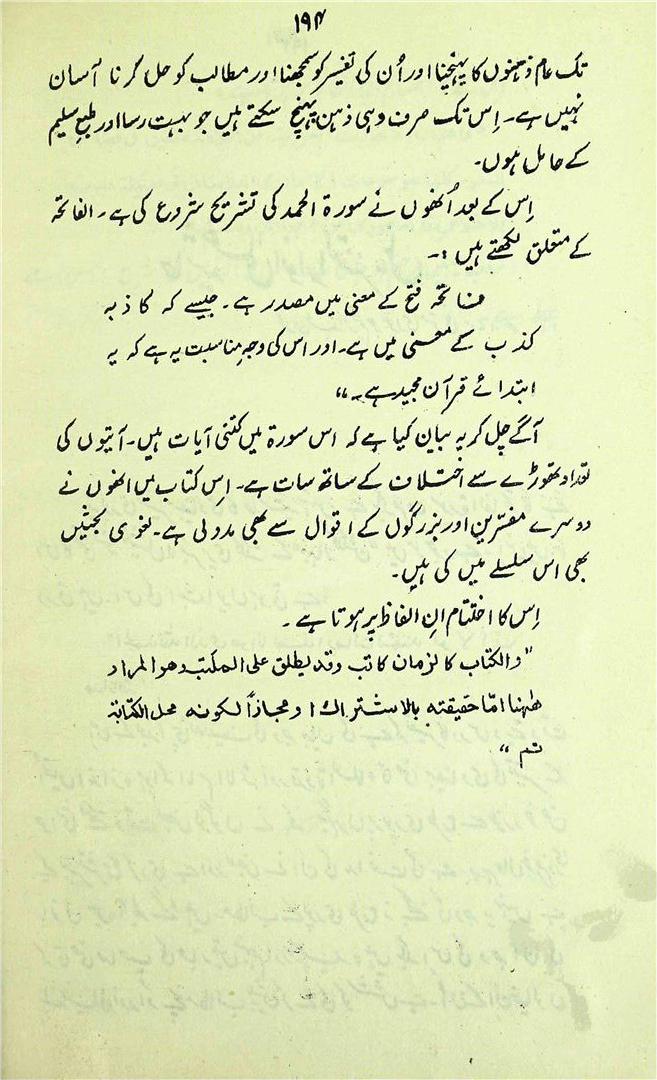 ۱۹۴
تک عام ذہنوں کا پہنچنا اور اُن کی تفسیر کو سمجھنا اور مطالب کو حل کرنا آسان
نہیں ہے۔ اِس تک صرف وہی ذہن پہنچ سکتے ہیں جو بہت رسا اور طبعِ سلیم
کے حامل ہوں۔
اِس کے بعد اُنھوں نے سورۃ الحمد کی تشریح شروع کی ہے۔ الفاتحہ
کے متعلق لکھتے ہیں :۔
فاتحہ فتح کے معنی میں مصدر ہے۔ جیسے کہ کاذبہ
کذب کے معنی میں ہے۔ اور اس کی وجہِ مناسبت یہ ہے کہ یہ
ابتدائے قرآن مجید ہے۔“
آگے چل کر یہ بیان کیا ہے کہ اس سورۃ میں کتنی آیات ہیں۔ آیتوں کی
تعداد تھوڑے سے اختلاف کے ساتھ سات ہے۔ اِس کتاب میں انھوں نے
دوسرے مفسّرین اور بزرگوں کے اقوال سے بھی مدد لی ہے۔ لغوی بحثیں
بھی اس سلسلے میں کی ہیں۔
اِس کا اختتام اِن الفاظ پر ہوتا ہے۔
”والکتاب کالزمان کاتب وقد یطلق علی المکتب وھو المراد
ھٰھنا امّا حقیقتہ بالاشتراک او مجازاً لکونہ محل الکتابۃ
تم “